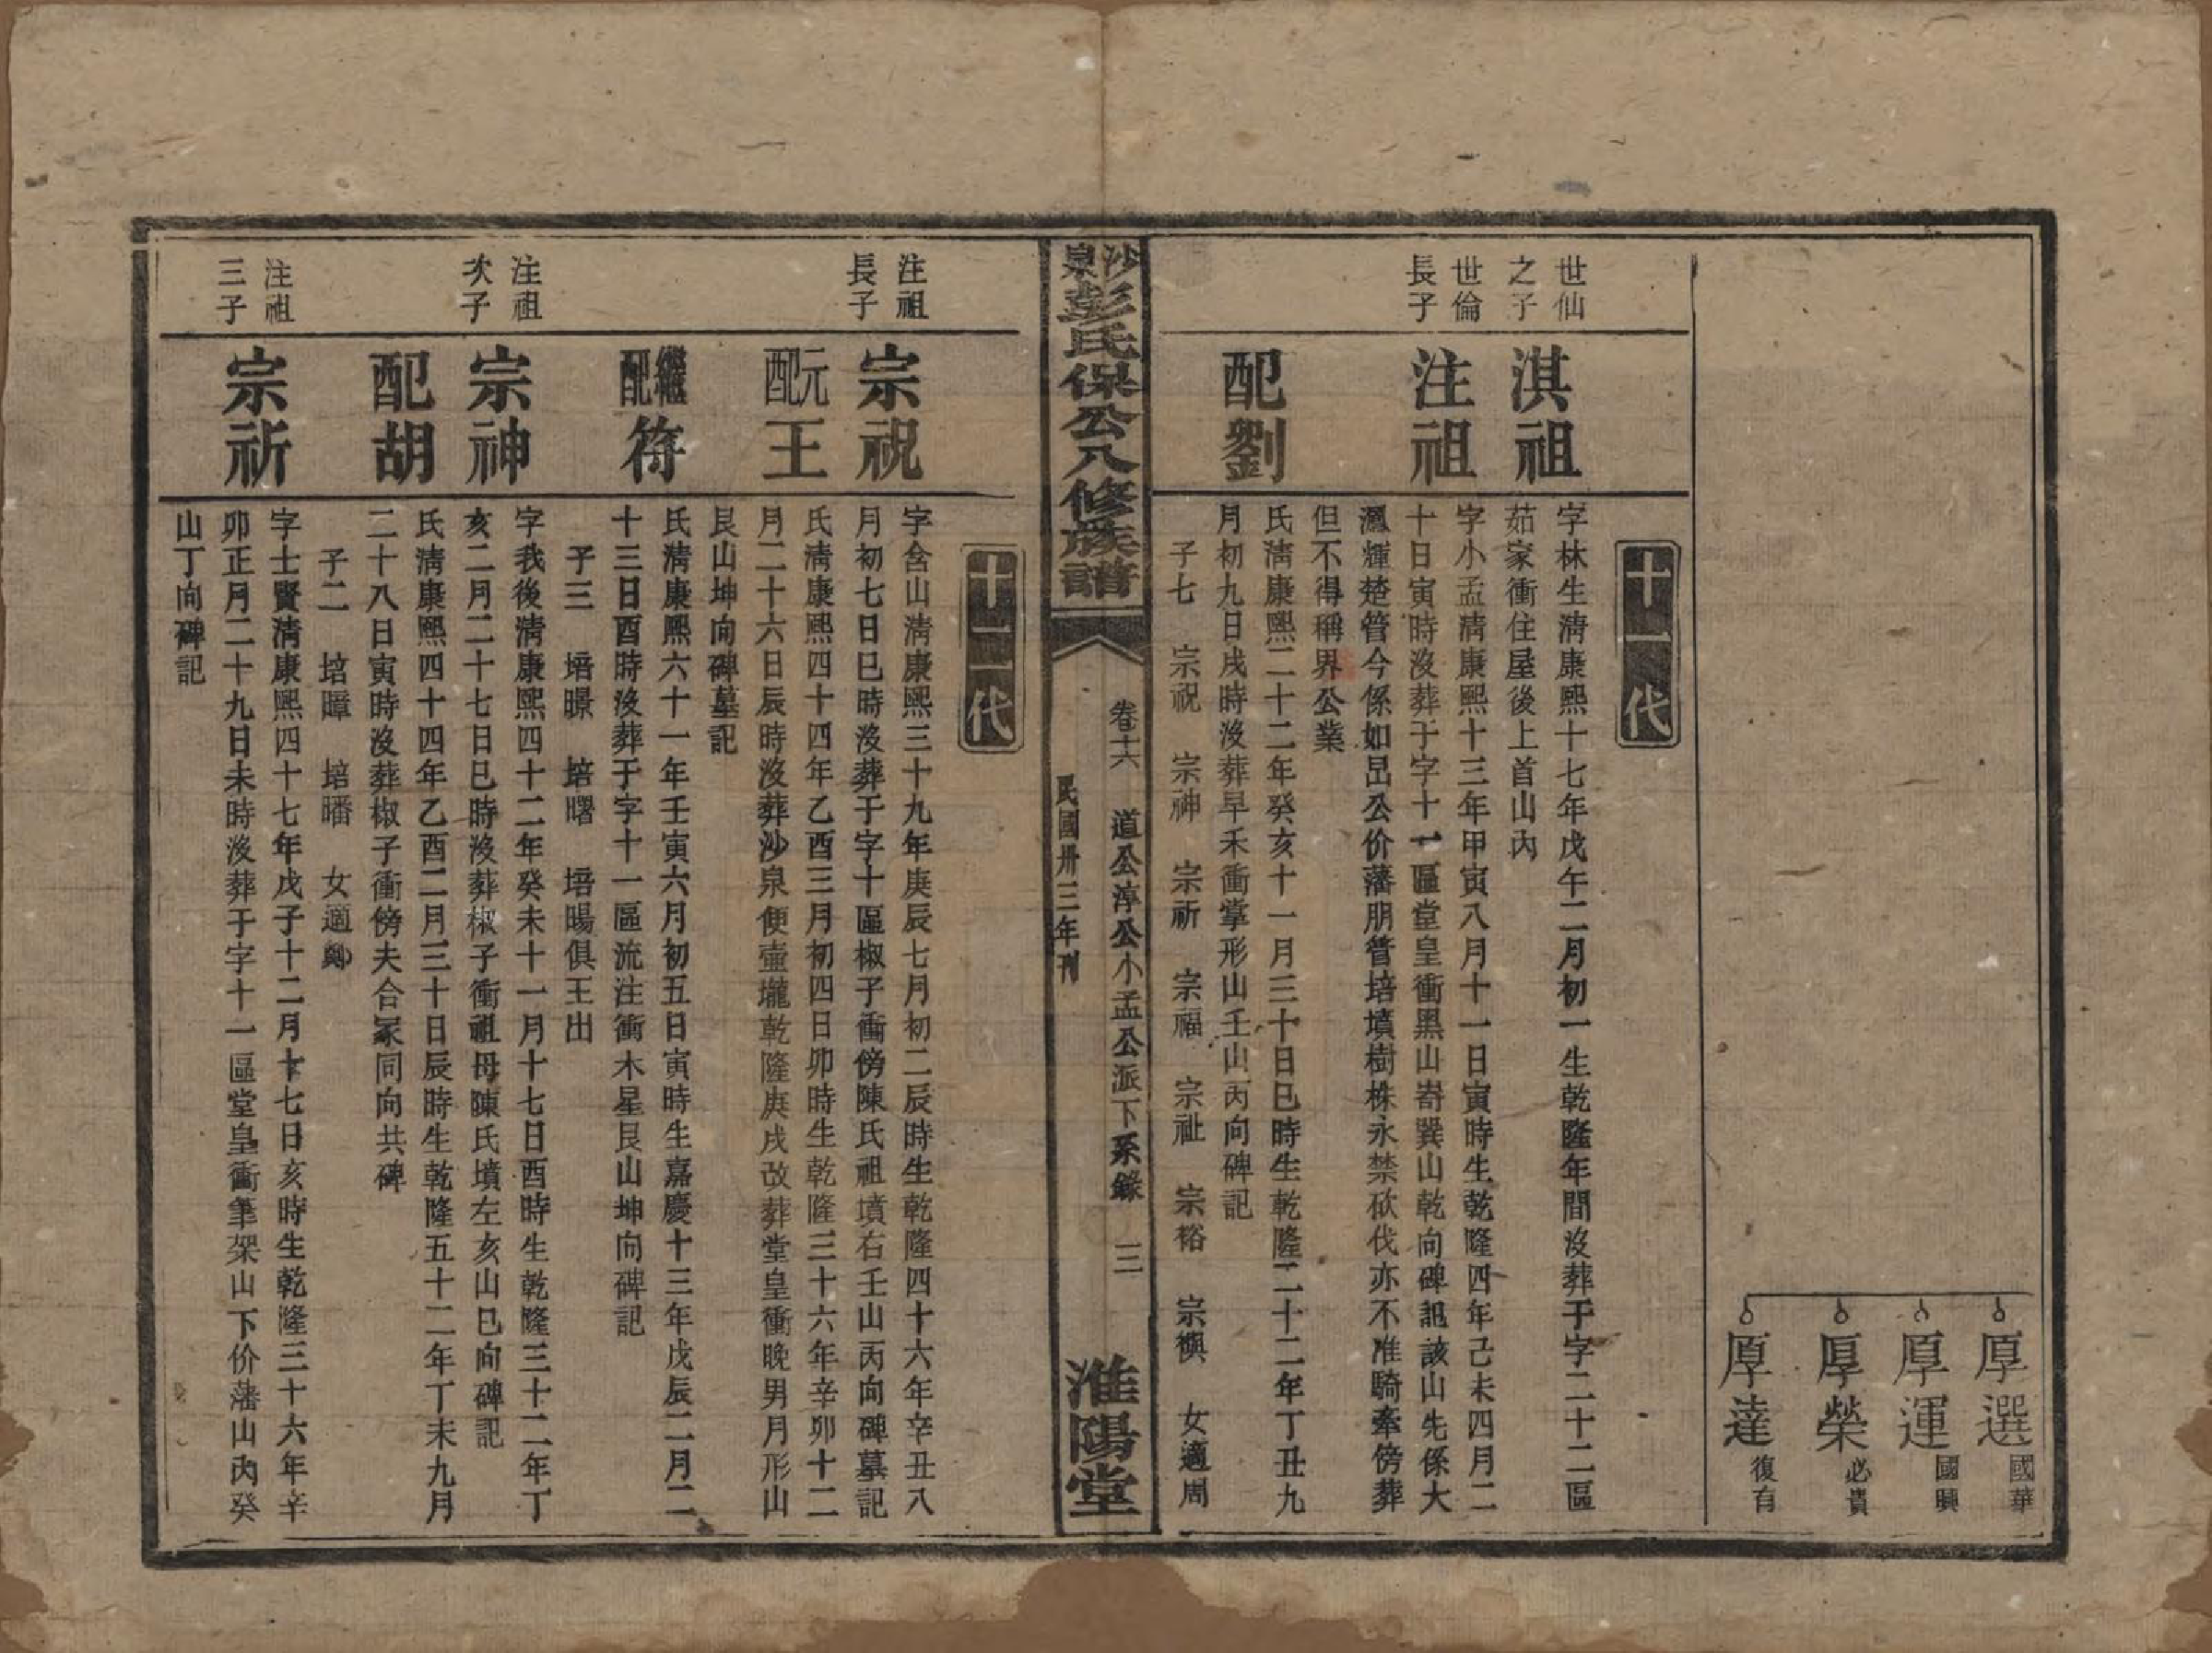 厚選 國華
厚運 國興
厚榮 必貴
厚達 復有
十一代
世仙之子
淇祖
字林生清康熙十七年戊午二月初一生乾隆年間沒葬于字二十二區
茹家衝住屋後上首山內
世倫長子
注祖
字小孟清康熙十三年甲寅八月十一日寅時生乾隆四年己未四月二
十日寅時沒葬于字十一區堂皇衝黑山嵜巽山乾向碑記該山先係大
灜輝楚管今係如岊公价藩朋管培墳樹株永禁砍伐亦不准騎牽傍葬
但不得稱界公業
配劉
氏清康熙二十二年癸亥十一月三十日巳時生乾隆二十二年丁丑九
月初九日戌時沒葬早禾衝掌形山壬山丙向碑記
子七 宗祝 宗神 宗祈 宗福 宗祉 宗裕 宗禩 女適周
沙泉彭氏保公八修族譜
卷十六 道公淳公小孟公派下系錄 三
民國卅三年刊
淮陽堂
十二代
注祖長子
宗祝
字含山清康熙三十九年庚辰七月初二辰時生乾隆四十六年辛丑八
月初七日巳時沒葬于字十區椒子衝傍陳氏祖墳右壬山丙向碑墓記
元配王
氏清康熙四十四年乙酉三月初四日卯時生乾隆三十六年辛卯十二
月二十六日辰時沒葬沙泉便壺壠乾隆庚戌改葬堂皇衝晚男月形山
艮山坤向碑墓記
繼配符
氏清康熙六十一年壬寅六月初五日寅時生嘉慶十三年戊辰二月二
十三日酉時沒葬于字十一區流注衝木星艮山坤向碑記
子三 培曔 培曙 培暘俱王出
注祖次子
宗神
字我後清康熙四十二年癸未十一月十七日酉時生乾隆三十二年丁
亥二月二十七日巳時沒葬椒子衝祖母陳氏墳左亥山巳向碑記
配胡
氏清康熙四十四年乙酉二月三十日辰時生乾隆五十二年丁未九月
二十八日寅時沒葬椒子衝傍夫合冢同向共碑
子二 培暲 培皤 女適鄭
注祖三子
宗祈
字士賢清康熙四十七年戊子十二月十七日亥時生乾隆三十六年辛
卯正月二十九日未時沒葬于字十一區堂皇衝筆架山下价藩山內癸
山丁向碑記